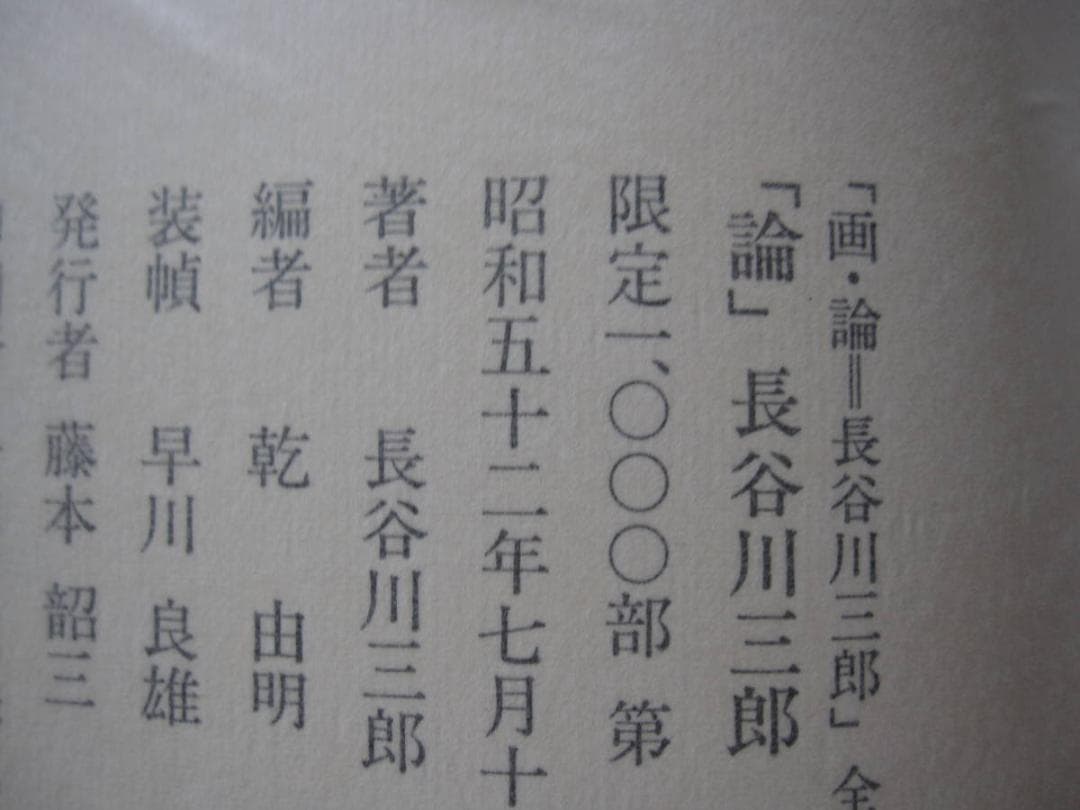 「画・論＝長谷川三郎」全
「論」 長谷川三郎
限定一、〇〇〇部 第
昭和五十二年七月十
著者 長谷川三郎
編者 乾 由明
装幀 早川 良雄
発行者 藤本 韶三